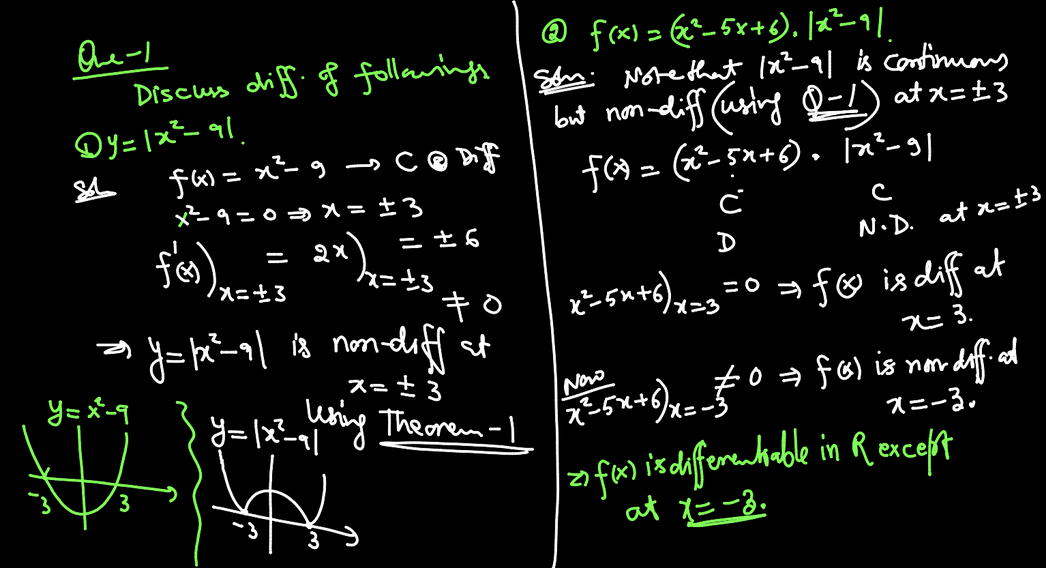 Que-1
Discuss diff. of followings
① y = |x² - 9|.
Sol
f(x) = x² - 9 → C & Diff
x² - 9 = 0 ⇒ x = ± 3
f'(x))ₓ₌±₃ = 2x)ₓ₌±₃ = ± 6
≠ 0
⇒ y = |x² - 9| is non-diff at
x = ± 3
Using Theorem-1
y = x² - 9
-3 3
y = |x² - 9|
-3 3
② f(x) = (x² - 5x + 6). |x² - 9|.
Soln: Note that |x² - 9| is continuous
but non-diff (using Q-1) at x = ± 3
f(x) = (x² - 5x + 6) . |x² - 9|
C C
D N.D. at x = ± 3
x² - 5x + 6)ₓ₌₃ = 0 ⇒ f(x) is diff at
x = 3.
Now
x² - 5x + 6)ₓ₌₋₃ ≠ 0 ⇒ f(x) is non diff. at
x = -3.
⇒ f(x) is differentiable in R except
at x = -3.